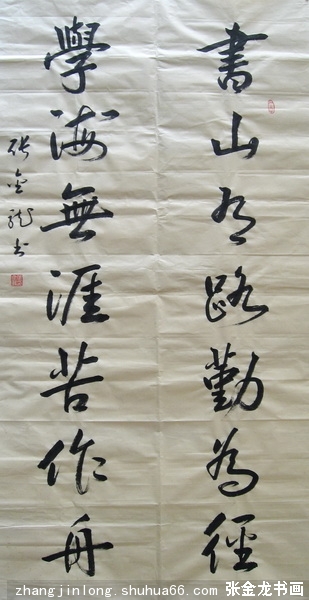 書山有路勤為徑
學海無涯苦作舟
張金龍书
zhangjinlong.shuhua66.com 张金龙书画